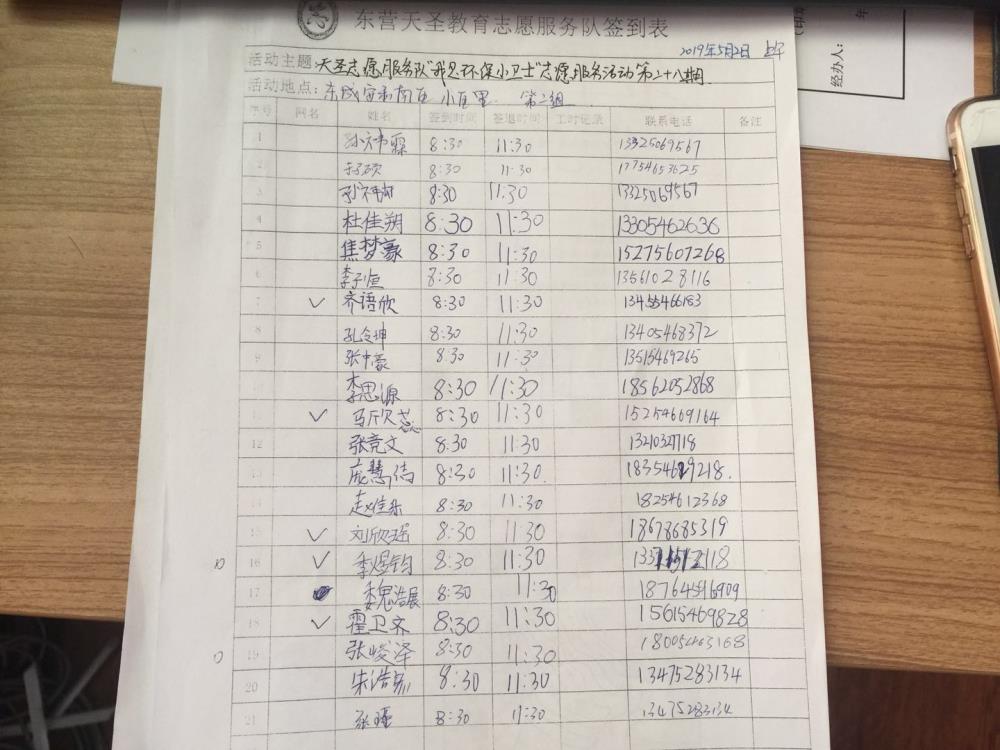 东营天圣教育志愿服务队签到表
2019年5月2日 上午
经办人:
年
活动主题: 天圣志愿服务队"我是环保小卫士"志愿服务活动第二十八期
活动地点: 东城安和南区 小区里 第二组
序号 网名 姓名 签到时间 签退时间 工时记录 联系电话 备注
1 8:30 11:30 13325069567
2 8:30 11:30 17754653625
3 8:30 11:30 13325069567
4 杜佳朔 8:30 11:30 13305462636
5 焦梦豪 8:30 11:30 15275607268
6 李子恒 8:30 11:30 13561028116
7 ✓ 齐语欣 8:30 11:30 13455466183
8 孔令坤 8:30 11:30 13405468372
9 张中豪 8:30 11:30 13515469265
10 李思源 8:30 11:30 18562052868
11 ✓ 马欣蕊 8:30 11:30 15254669164
12 张竞文 8:30 11:30 13210327718
13 庞慧倩 8:30 11:30. 18354619218.
14 赵佳乐 8:30 11:30 18254612368
15 ✓ 刘欣瑶 8:30 11:30 18678685319
16 ✓ 李煜钧 8:30 11:30
17 魏浩展 8:30 11:30 18764596909
18 ✓ 霍卫齐 8:30 11:30 15615469828
19 张峻泽 8:30 11:30 18005463168
20 8:30 11:30 13475283134
21 张瑾 8:30 11:30 13475283134